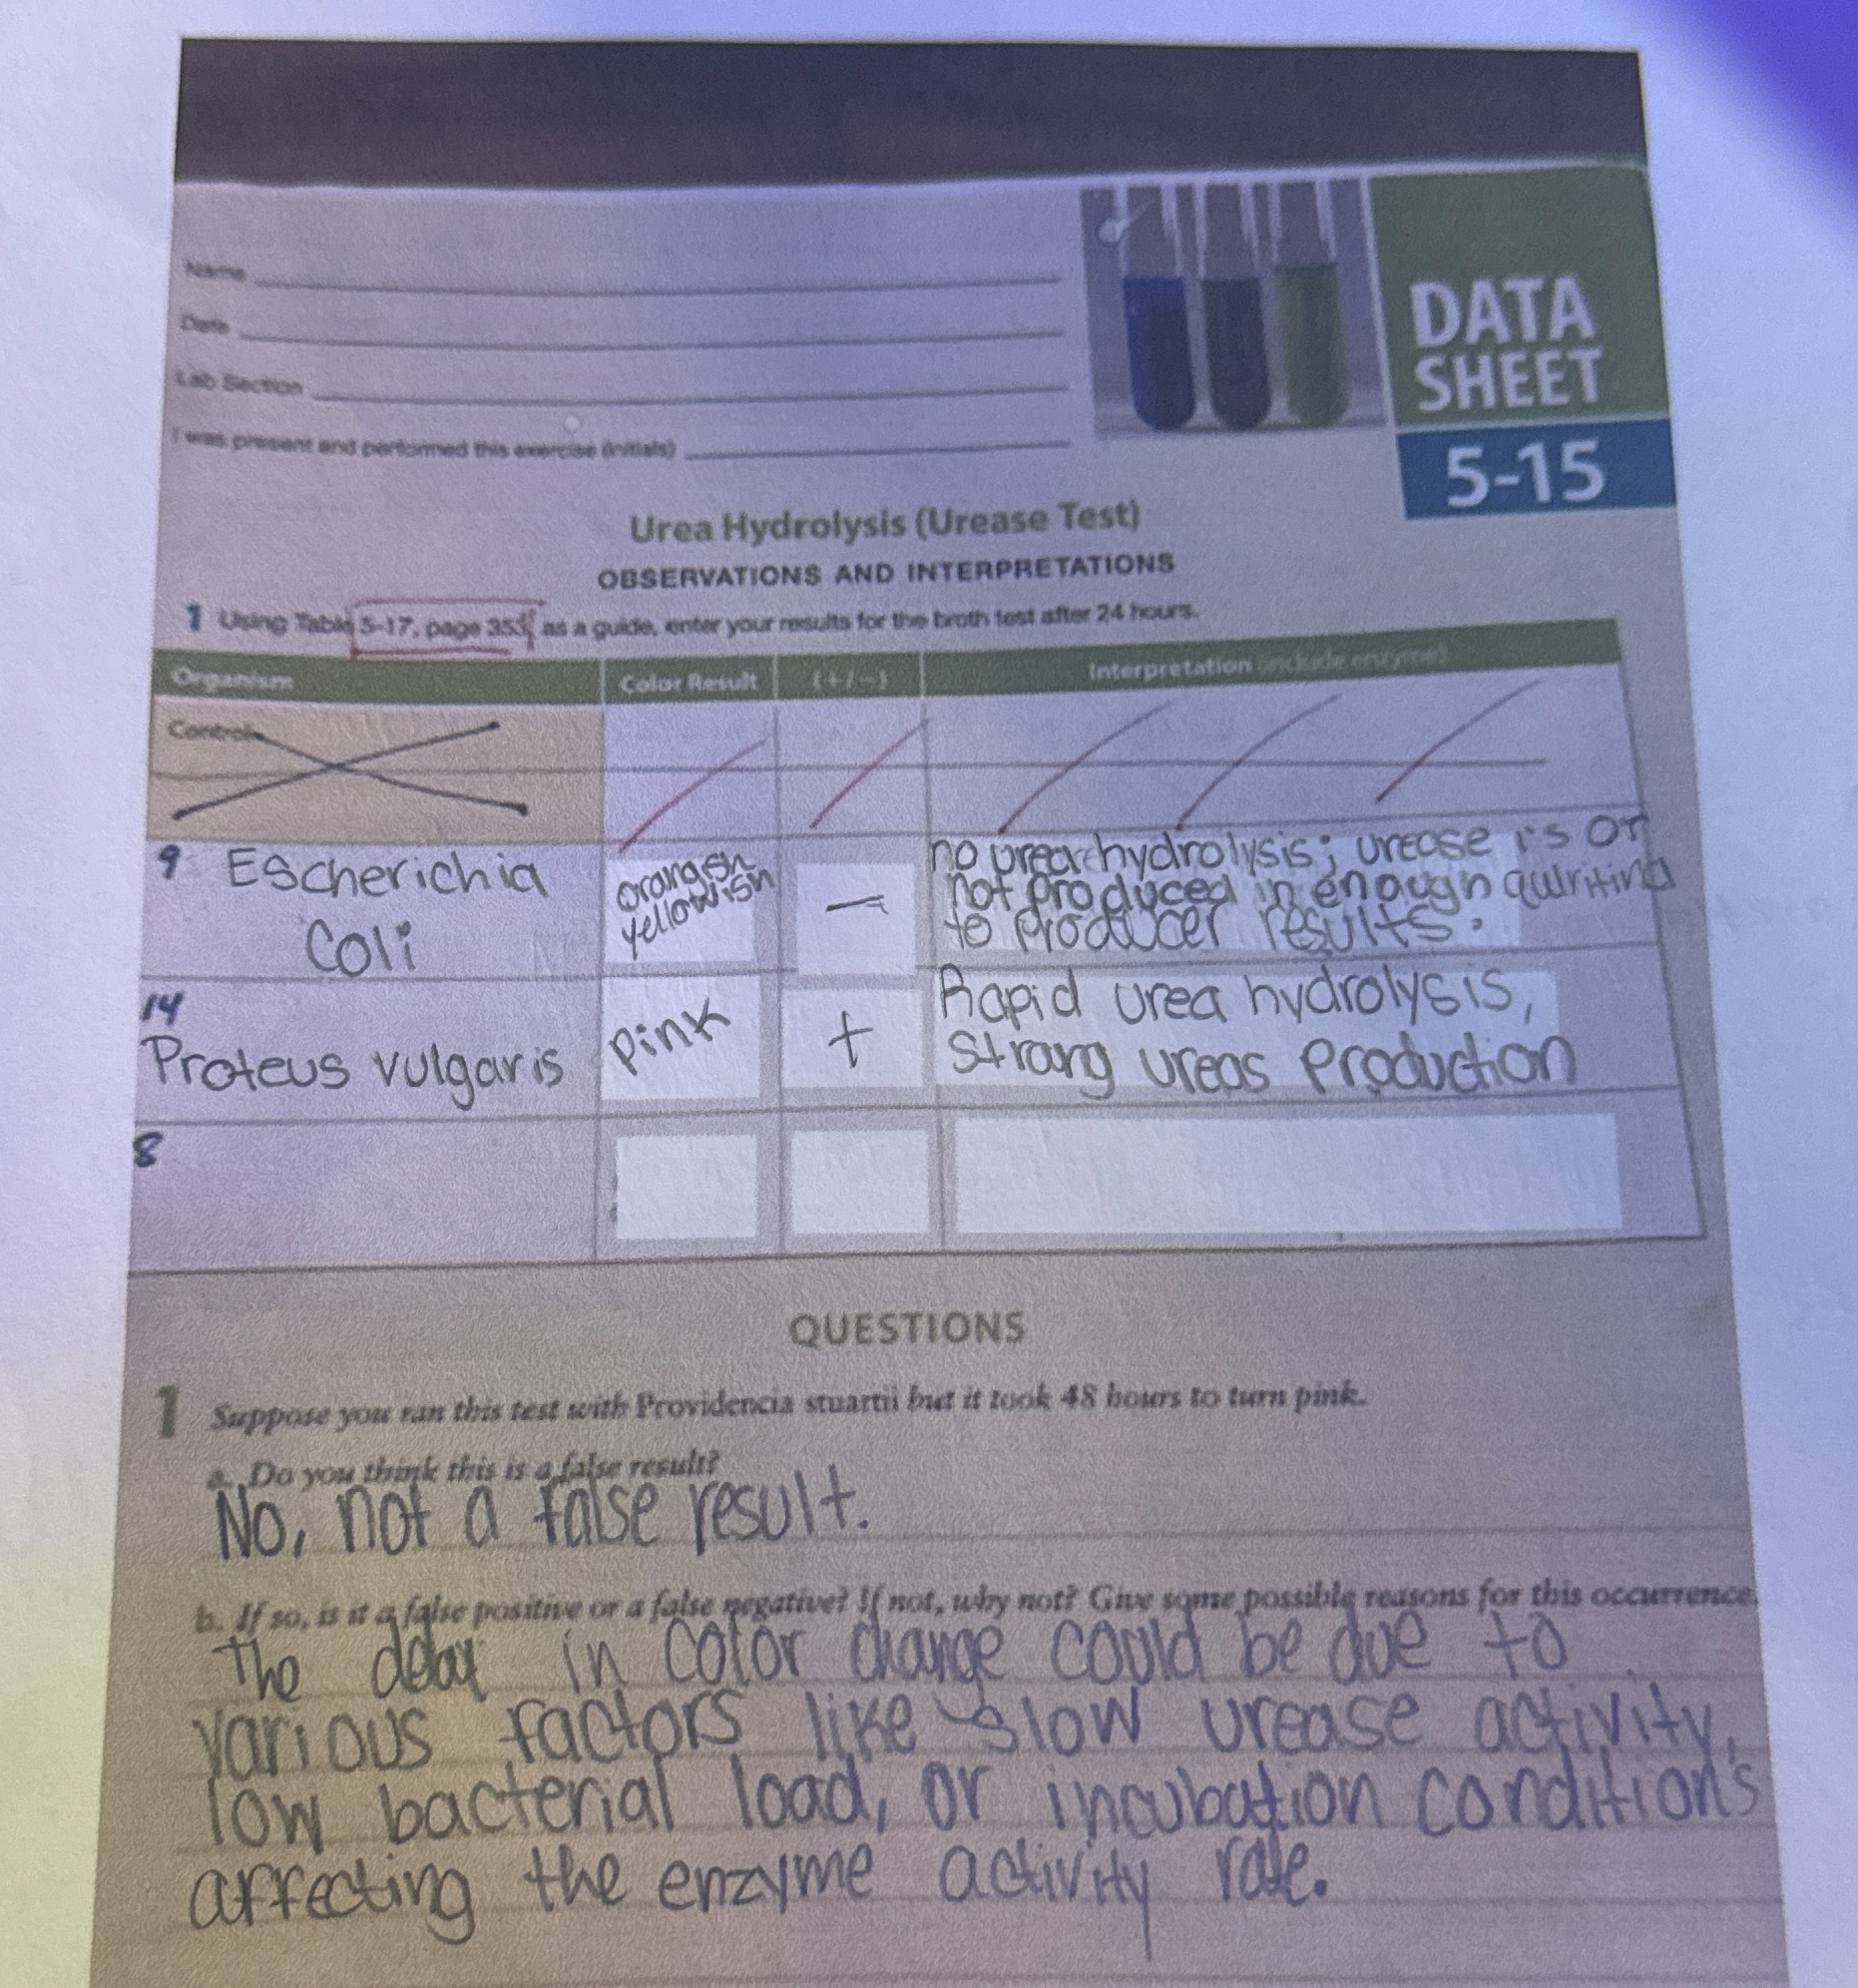 Name
Date
Lab Section
I was present and performed this exercise (initials)
DATA
SHEET
5-15
Urea Hydrolysis (Urease Test)
OBSERVATIONS AND INTERPRETATIONS
1 Using Table 5-17, page 353, as a guide, enter your results for the broth test after 24 hours.
Organism Color Result (+/−) Interpretation (include enzyme)
Control
9 Escherichia
Coli
orangish
yellowish
−
no urea hydrolysis; urease is or
not produced in enough
to producer results.
14
Proteus vulgaris
pink
+
Rapid urea hydrolysis,
Strong ureas production
8
QUESTIONS
1 Suppose you ran this test with Providencia stuartii but it took 48 hours to turn pink.
a. Do you think this is a false result?
No, not a false result.
b. If so, is it a false positive or a false negative? If not, why not? Give some possible reasons for this occurrence.
The delay in color change could be due to
various factors like slow urease activity,
low bacterial load, or incubation conditions
affecting the enzyme activity rate.